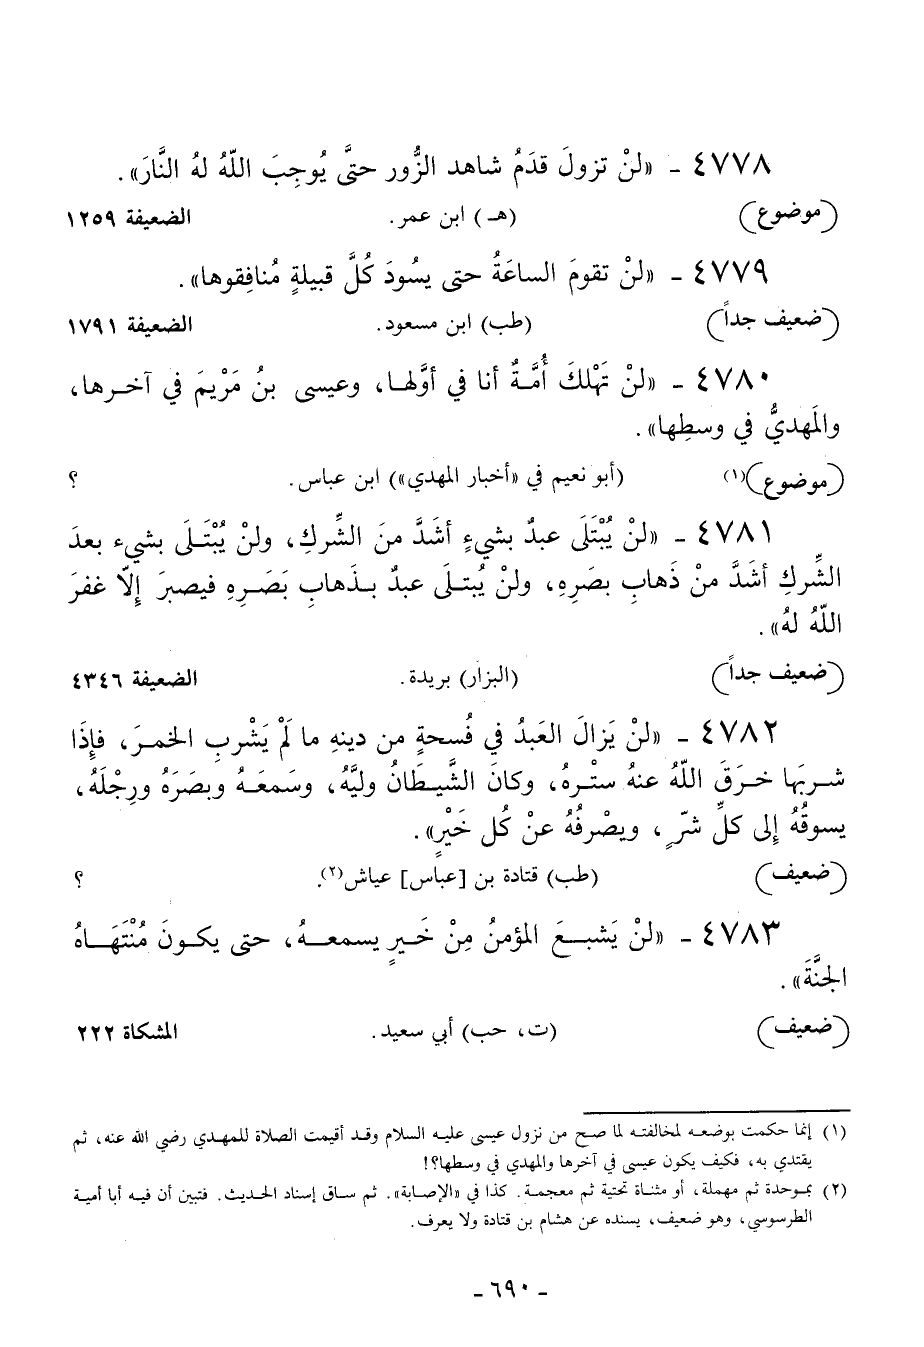 ٤٧٧٨ - «لنْ تزولَ قدَمُ شاهد الزُّور حتىَّ يُوجِبَ اللّهُ لهُ النَّارَ».
(موضوع) (هـ) ابن عمر. الضعيفة ١٢٥٩
٤٧٧٩ - «لنْ تقومَ الساعَةُ حتى يسُودَ كُلَّ قبيلةٍ مُنافِقوها».
(ضعيف جداً) (طب) ابن مسعود. الضعيفة ١٧٩١
٤٧٨٠ - «لنْ تَهْلكَ أُمَّةٌ أنا في أوَّلها، وعيسى بنُ مَرْيمَ في آخرها،
والمَهديُّ في وسطِها».
(موضوع)(١) (أبو نعيم في «أخبار المهدي») ابن عباس. ؟
٤٧٨١ - «لنْ يُبْتَلَى عبدٌ بشيءٍ أشَدَّ منَ الشِّرك، ولنْ يُبْتَلَى بشيء بعدَ
الشِّركِ أشَدَّ منْ ذَهابِ بصَرِهِ، ولنْ يُبتلَى عبدٌ بذهابِ بَصَرِهِ فيصبرَ إلاّ غفرَ
اللّهُ لهُ».
(ضعيف جداً) (البزار) بريدة. الضعيفة ٤٣٤٦
٤٧٨٢ - «لنْ يَزالَ العَبدُ في فُسحةٍ من دينهِ ما لَمْ يَشْربِ الخمرَ، فإِذَا
شربَها خرَقَ اللّهُ عنهُ ستْرهُ، وكانَ الشَّيطَانُ وليَّهُ، وسَمعَهُ وبصَرَهُ ورِجْلَهُ،
يسوقُهُ إلى كلِّ شرّ، ويصْرفُهُ عنْ كُل خَيْرٍ».
(ضعيف) (طب) قتادة بن [عباس] عياش(٢). ؟
٤٧٨٣ - «لنْ يَشبعَ المؤمنُ مِنْ خَيرٍ يسمعهُ، حتى يكونَ مُنْتَهَاهُ
الجنَّةَ».
(ضعيف) (ت، حب) أبي سعيد. المشكاة ٢٢٢
(١) إنما حكمت بوضعه لمخالفته لما صح من نزول عيسى عليه السلام وقد أقيمت الصلاة للمهدي رضي الله عنه، ثم
يقتدي به، فكيف يكون عيسى في آخرها والمهدي في وسطها؟!
(٢) بموحدة ثم مهملة، أو مثناة تحتية ثم معجمة. كذا في «الإصابة». ثم ساق إسناد الحديث. فتبين أن فيه أبا أمية
الطرسوسي، وهو ضعيف، يسنده عن هشام بن قتادة ولا يعرف.
- ٦٩٠ -